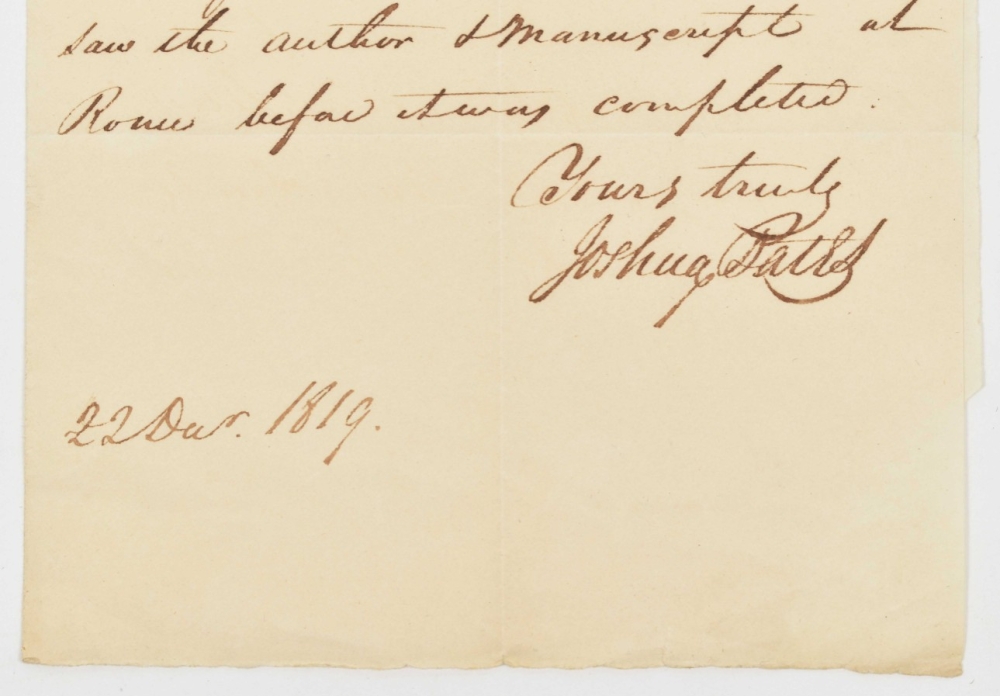 saw the author & Manuscript at
Rome before it was completed.
Yours truly
Joshua Bates
22 Decr. 1819.